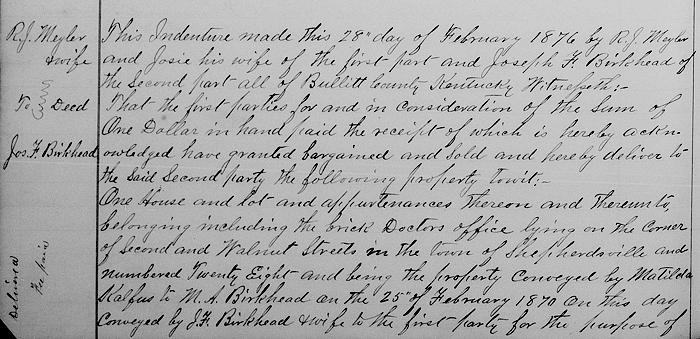 R. J. Meyler
&wife
To Deed
Jos. F. Birkhead
Delivered
Fee paid
This Indenture made this 28" day of February 1876 by R. J. Meyler
and Josie his wife of the first part and Joseph F. Birkhead of
the Second part all of Bullitt County Kentucky Witnesseth:-
That the first parties for and in consideration of the Sum of
One Dollar in hand paid the receipt of which is hereby ackn-
owledged have granted bargained and Sold and hereby deliver to
the Said Second party the following property towit:-
One House and Lot and appurtenances thereon and thereunto,
belonging including the brick Doctors office lying on the Corner
of Second and Walnut Streets in the town of Shepherdsville and
numbered Twenty Eight and being the property Conveyed by Matilda
Kalfus to M. A. Birkhead on the 25" of February 1870 on this day
Conveyed by J. F. Birkhead &wife to the first party for the purpose of